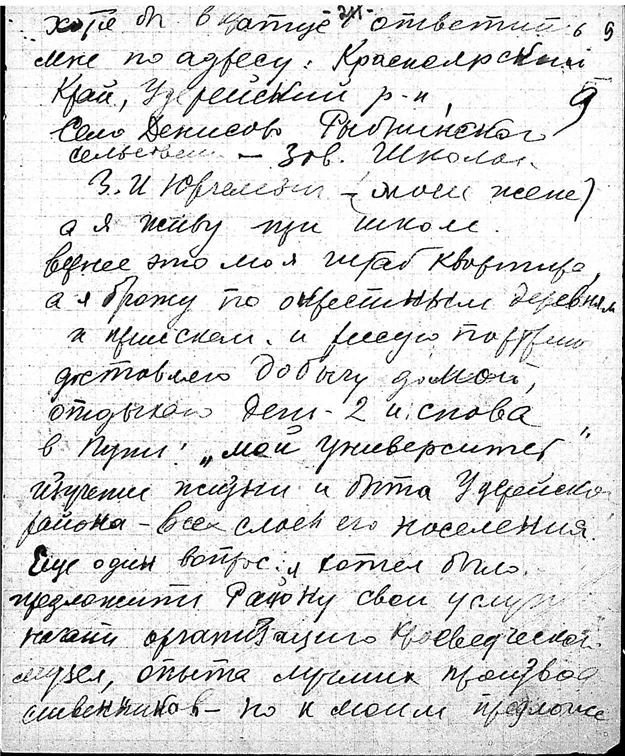 хотя бы вкратце ответить 9
мне по адресу: Красноярский
Край, Удерейский р-н, 9
Село Денисово Рыбинского
сельсовета — Зав. Школой.
З. И (моей жене)
а я живу при школе.
вернее это моя штаб квартира,
а я брожу по окрестным деревням
и приискам. и рисую портреты
доставляю добычу домой,
отдыхаю день-2 и снова
в путь! „мой университет"
изучение жизни и быта Удерейского
района — всех слоев его населения.
Еще один вопрос: я хотел было
предложить Району свои услуги
начать организацию Краеведческой
музея, опыта лучших производ
ственников — но к моим предложе